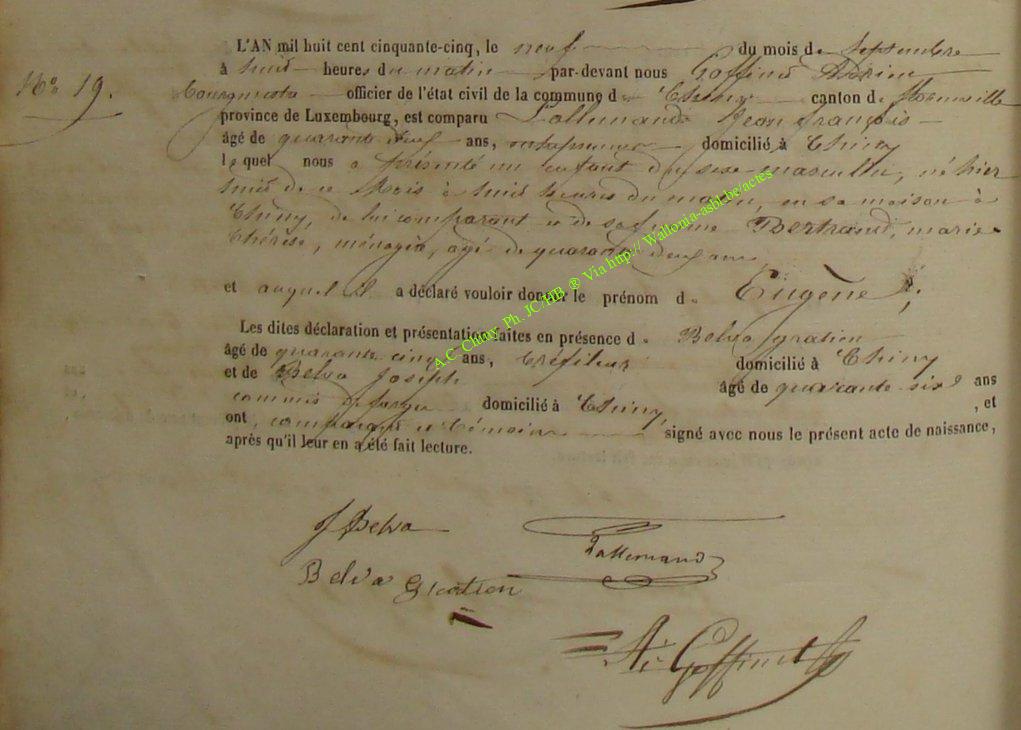 L'AN mil huit cent cinquante-cinq, le neuf du mois de septembre
N° 19.
à huit heures du matin par-devant nous Goffinet Adrien
bourgmestre officier de l'état civil de la commune de Chiny canton de florenville
province de Luxembourg, est comparu Lallemand Jean françois
âgé de quarante neuf ans, domicilié à Chiny
lequel nous a présenté un enfant du sexe masculin, né hier
huit de ce Mois à huit heures du matin, en sa maison à
Chiny, de lui comparant et de sa femme Bertrand, marie
thérèse, ménagère, agée de quarante deux ans
et auquel il a déclaré vouloir donner le prénom de Eugène
Les dites déclaration et présentation faites en présence de Belva gratien
âgé de quarante cinq ans, tréfileur domicilié à Chiny
et de Belva Joseph âgé de quarante six ans
commis de forges domicilié à Chiny, et
ont, comparant et témoins signé avec nous le présent acte de naissance,
après qu'il leur en a été fait lecture.
J Belva
Lallemand
Belva Gratien
A. Goffinet
A.C. Chiny Ph. JC/HB ® Via http:// Wallonia-asbl.be/actes